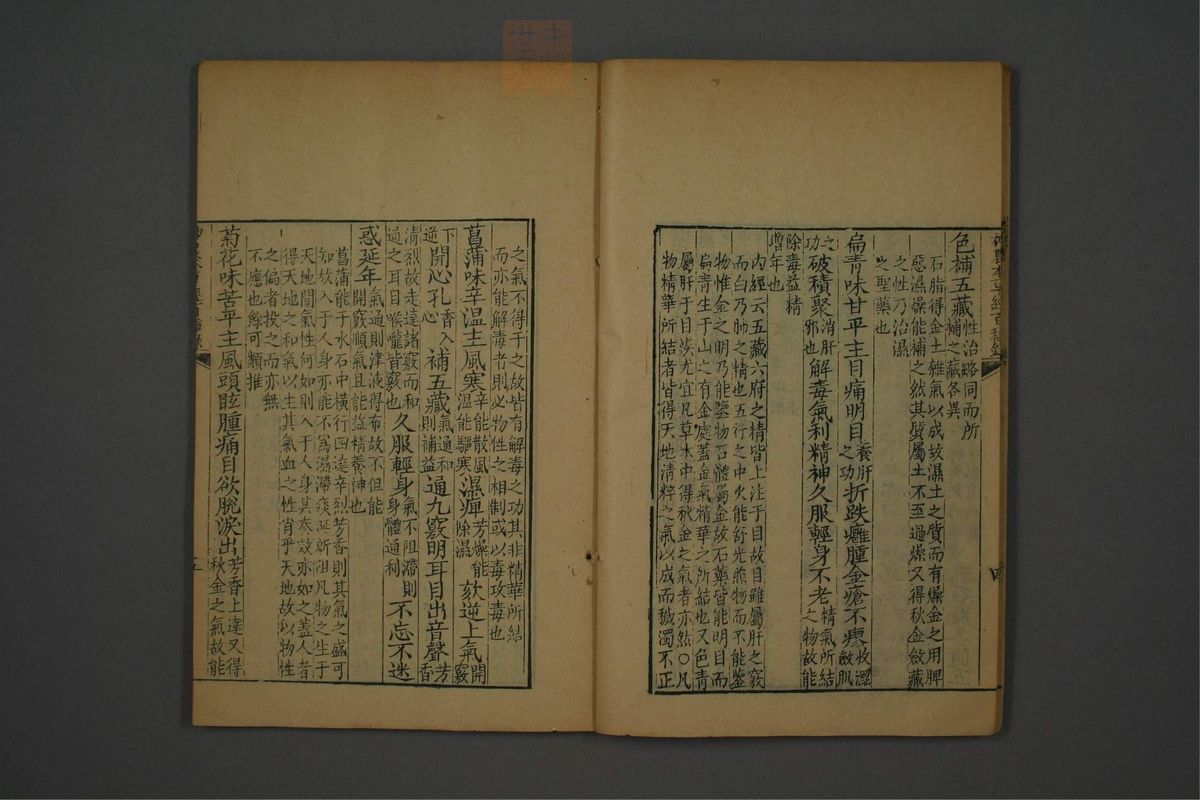 神農本草經百種錄
色補五藏性治略同而所補之藏各異
石脂得金土雜氣以成故濕土之質而有燥金之用脾
惡濕燥能補之然其質屬土不至過燥又得秋金斂藏
之性乃治濕
之聖藥也
扁青味甘平主目痛明目養肝之功折跌癰腫金瘡不瘳收澀斂肌
之功破積聚消肝邪也解毒氣利精神久服輕身不老精氣所結之物故能
除毒益精增年也
內經云五藏六府之精皆上注于目故目雖屬肝之竅
而白乃肺之精也五行之中火能舒光照物而不能鑒
物惟金之明乃能鑒物石體屬金故石藥皆能明目而
扁青生于山之有金處蓋金氣精華之所結也又色青
屬肝于目疾尤宜凡草木中得秋金之氣者亦然○凡
物精華所結者皆得天地清粹之氣以成而穢濁不正
四
之氣不得干之故皆有解毒之功其非精華所結
而亦能解毒者則必物性之相制或以毒攻毒也
菖蒲味辛溫主風寒辛能散風溫能驅寒濕痺芳燥能除濕欬逆上氣開竅
下逆開心孔香入心補五藏氣通和則補益通九竅明耳目出音聲芳香
清烈故走達諸竅而和通之耳目喉嚨皆竅也久服輕身氣不阻滯則身體通利不忘不迷
惑延年氣通則津液得布故不但能開竅順氣且能益精養神也
菖蒲能于水石中橫行四達辛烈芳香則其氣之盛可
知故入于人身亦能不為濕滯痰涎所阻凡物之生于
天地間氣性何如則入于人身其奏效亦如之蓋人者
得天地之和氣以生其氣血之性肖乎天地故以物性
之偏者投之而亦無
不應也餘可類推
菊花味苦平主風頭眩腫痛目欲脫淚出芳香上達又得秋金之氣故能
五